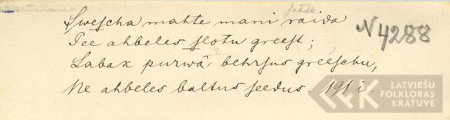 Swescha mahte mani raida
Tēē ahbeles slotu greest;
Labak purwâ behrsus greeschu,
Ne ahbeles baltus seedus. 191.i.
N4288
LATVIEŠU
FOLKLORAS
KRĀTUVE